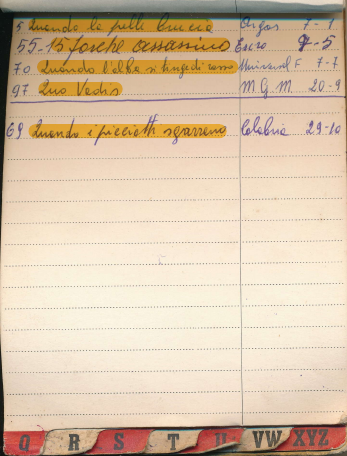 5 Quando la pelle brucia Orgas 7-1
55-15 forche assassino Euro 9-5
70 Quando l'alba si tinge di rosso Universal F 7-7
97 Quo Vadis M.G.M. 20-9
69 Quando i picciotti sgarrano Calabria 29-10
Q R S T U VW XYZ